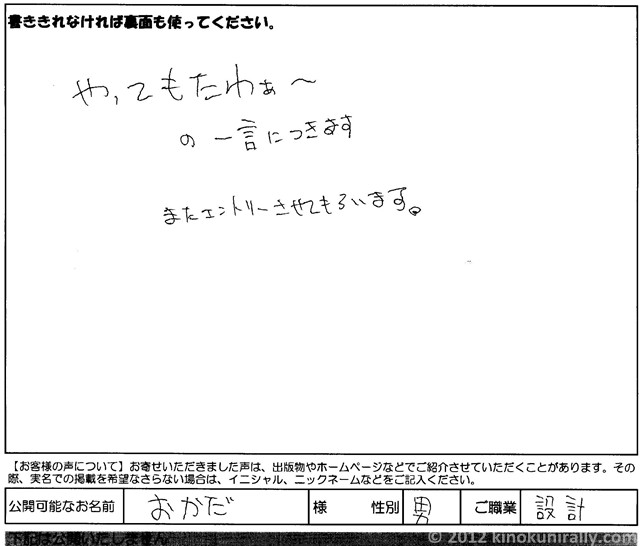 書ききれなければ裏面も使ってください。
やってもたわぁ～
の一言につきます
またエントリーさせてもらいます。
【お客様の声について】お寄せいただきました声は、出版物やホームページなどでご紹介させていただくことがあります。その
際、実名での掲載を希望なさらない場合は、イニシャル、ニックネームなどをご記入ください。
公開可能なお名前 おかだ 様 性別 男 ご職業 設計
下記は公開いたしません
© 2012 kinokunirally.com